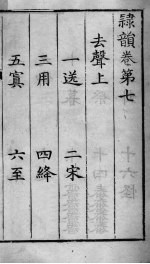 隷韻卷第七
去聲上
一送 二宋
三用 四絳
五寘 六至